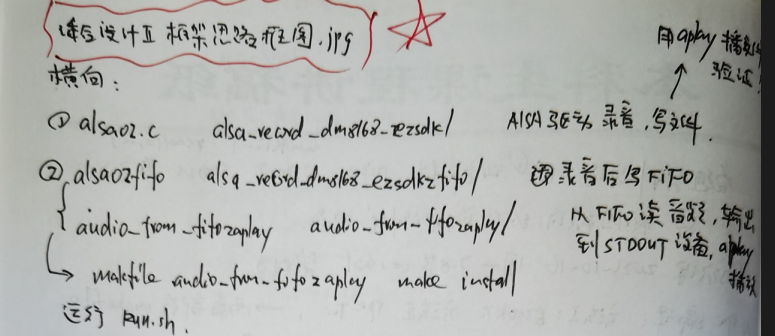 课后设计II 框架思路框图.jpg
用aplay播放
验证!
横向:
① alsa02.c alsa_record_dm8168_ezsdk/ AlSA驱动 录音,写文件.
② alsa02fifo alsa_record_dm8168_ezsdk2fifo/ 录音后写FiFO
audio_from_fifo2aplay audio_from_fifo2aplay/ 从FIFO读音频,输出
到STDOUT设备, aplay播放
makfile audio_from_fifo2aplay make install
运行 run.sh.